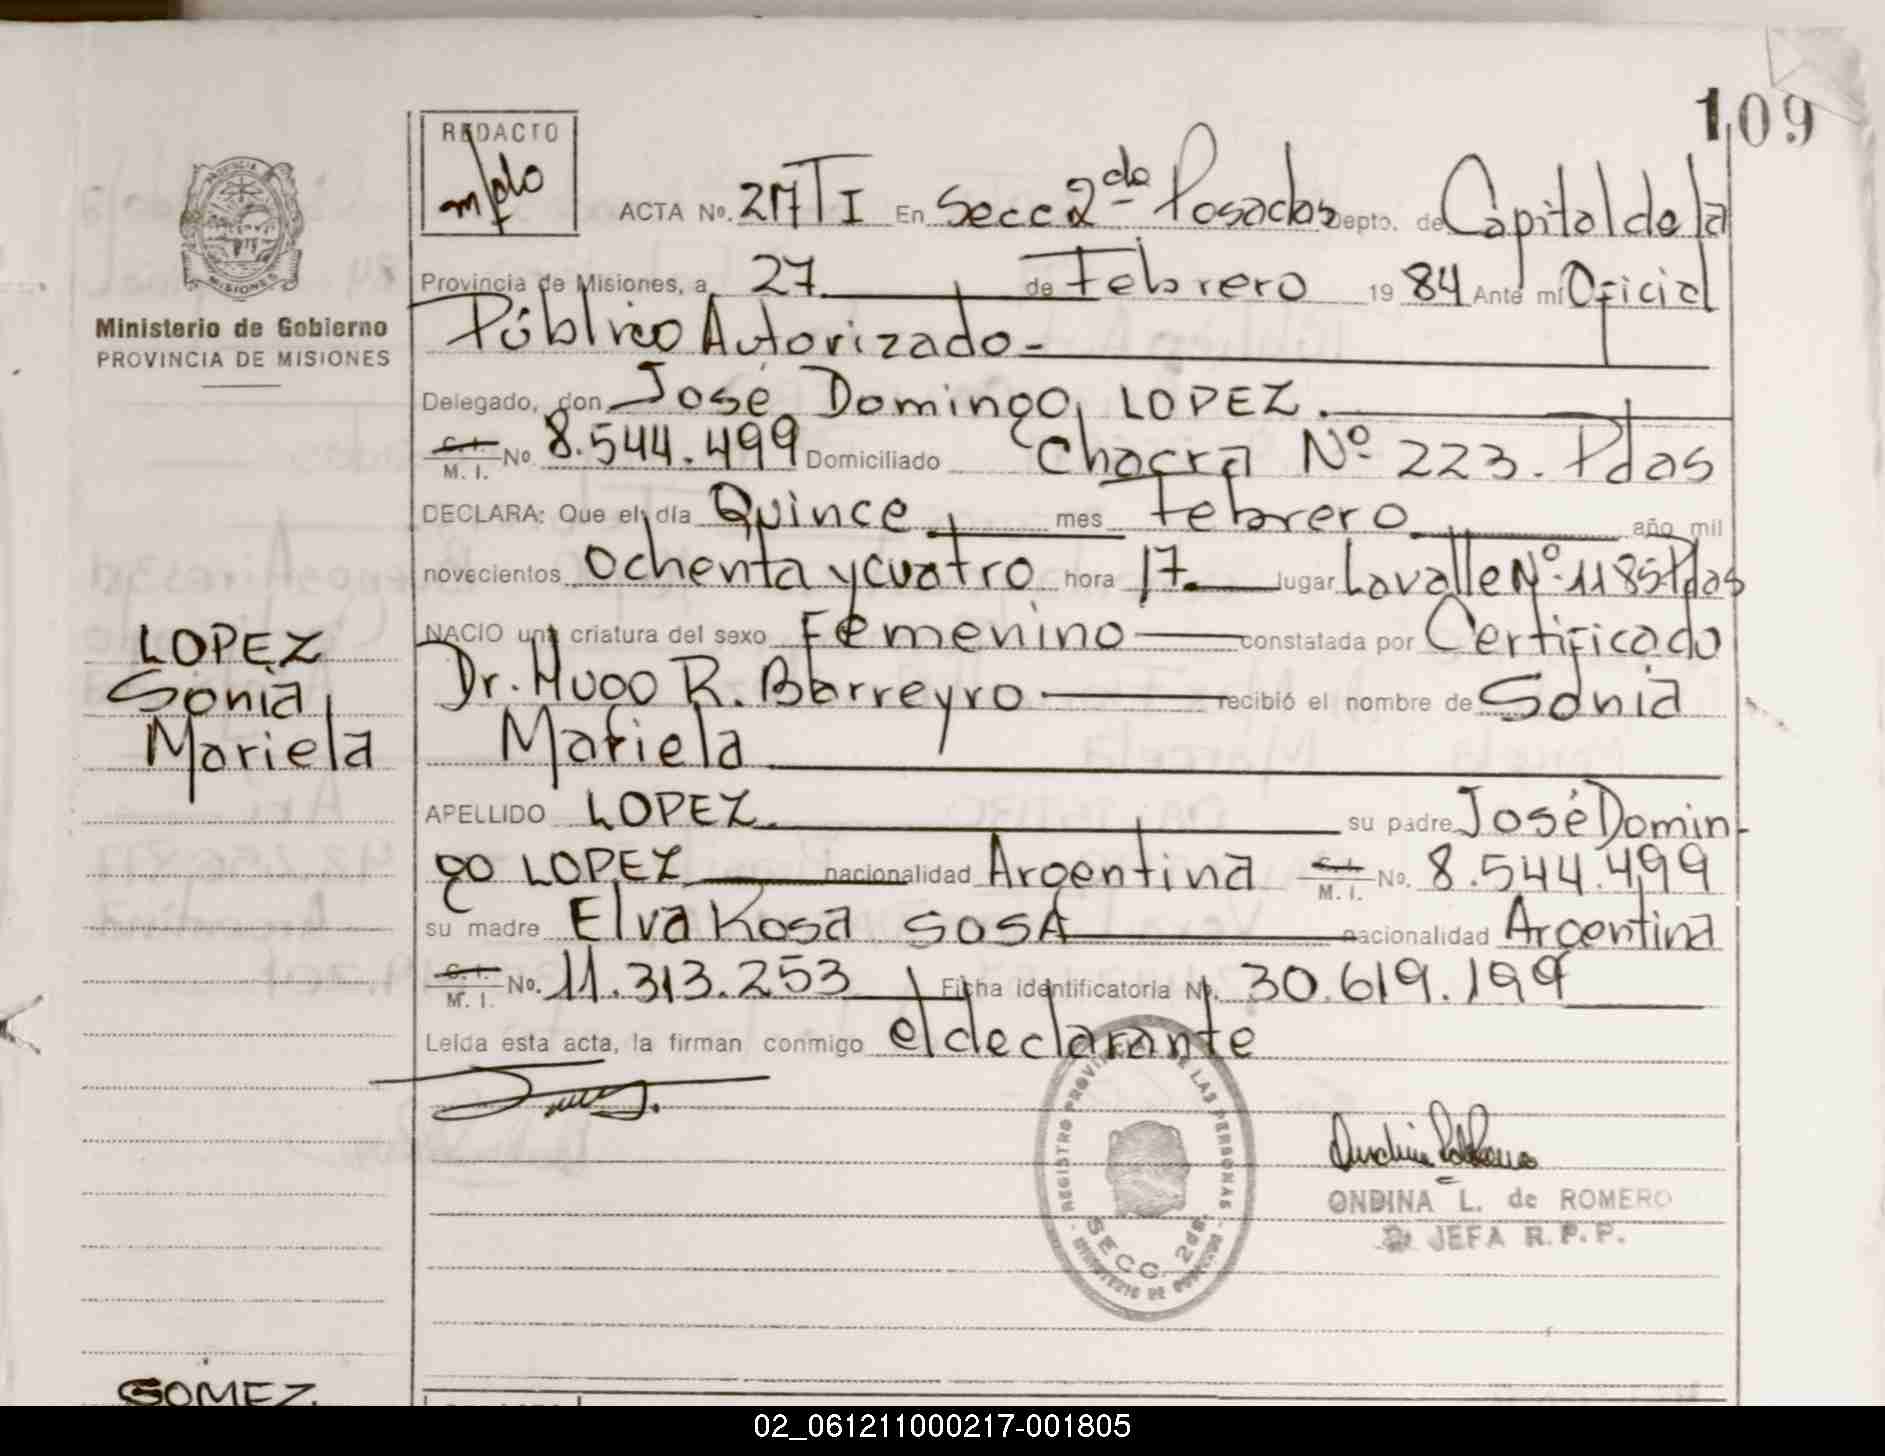 109
REDACTO
ACTA No. 217 T I En Secc 2da Posadas Depto. de Capital de la
PROVINCIA
MISIONES
Provincia de Misiones, a 27 de Febrero 1984 Ante mí Oficial
Ministerio de Gobierno
PROVINCIA DE MISIONES
Público Autorizado-
Delegado, don José Domingo LOPEZ.
C. I. M. I. No. 8.544.499 Domiciliado Chacra Nº 223. Pdas
DECLARA: Que el día Quince mes Febrero año mil
novecientos ochenta y cuatro hora 17. lugar Lavalle Nº 1185 Pdas
LOPEZ
Sonia
Mariela
NACIO una criatura del sexo Femenino constatada por Certificado
Dr. Hugo R. Barreyro recibió el nombre de Sonia
Mariela
APELLIDO LOPEZ su padre José Domin-
go LOPEZ nacionalidad Argentina C. I. M. I. No. 8.544.499
su madre Elva Rosa SOSA nacionalidad Argentina
C. I. M. I. No. 11.313.253 Ficha identificatoria No. 30.619.199
Leída esta acta, la firman conmigo el declarante
REGISTRO PROVINCIAL DE LAS PERSONAS
SECC. 2da.
MINISTERIO DE GOBIERNO
ONDINA L. de ROMERO
JEFA R.P.P.
GOMEZ
02_061211000217-001805